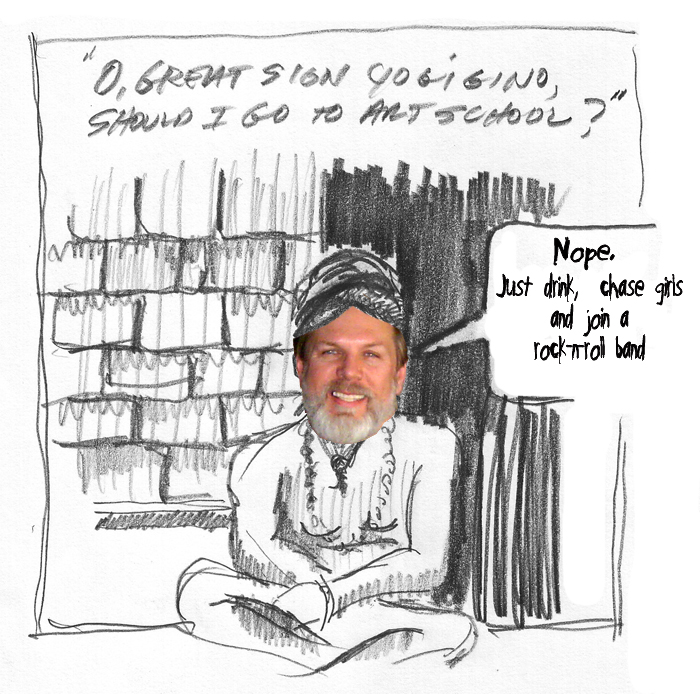 "O, GREAT SIGN YOGI GINO,
SHOULD I GO TO ART SCHOOL?"
Nope.
Just drink, chase girls
and join a
rock-n-roll band